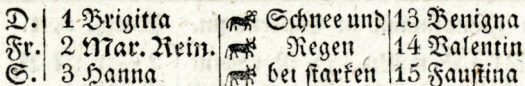 D. 1 Brigitta Schnee und 13 Benigna
Fr. 2 Mar. Rein. Regen 14 Valentin
S. 3 Hanna bei starken 15 Faustina